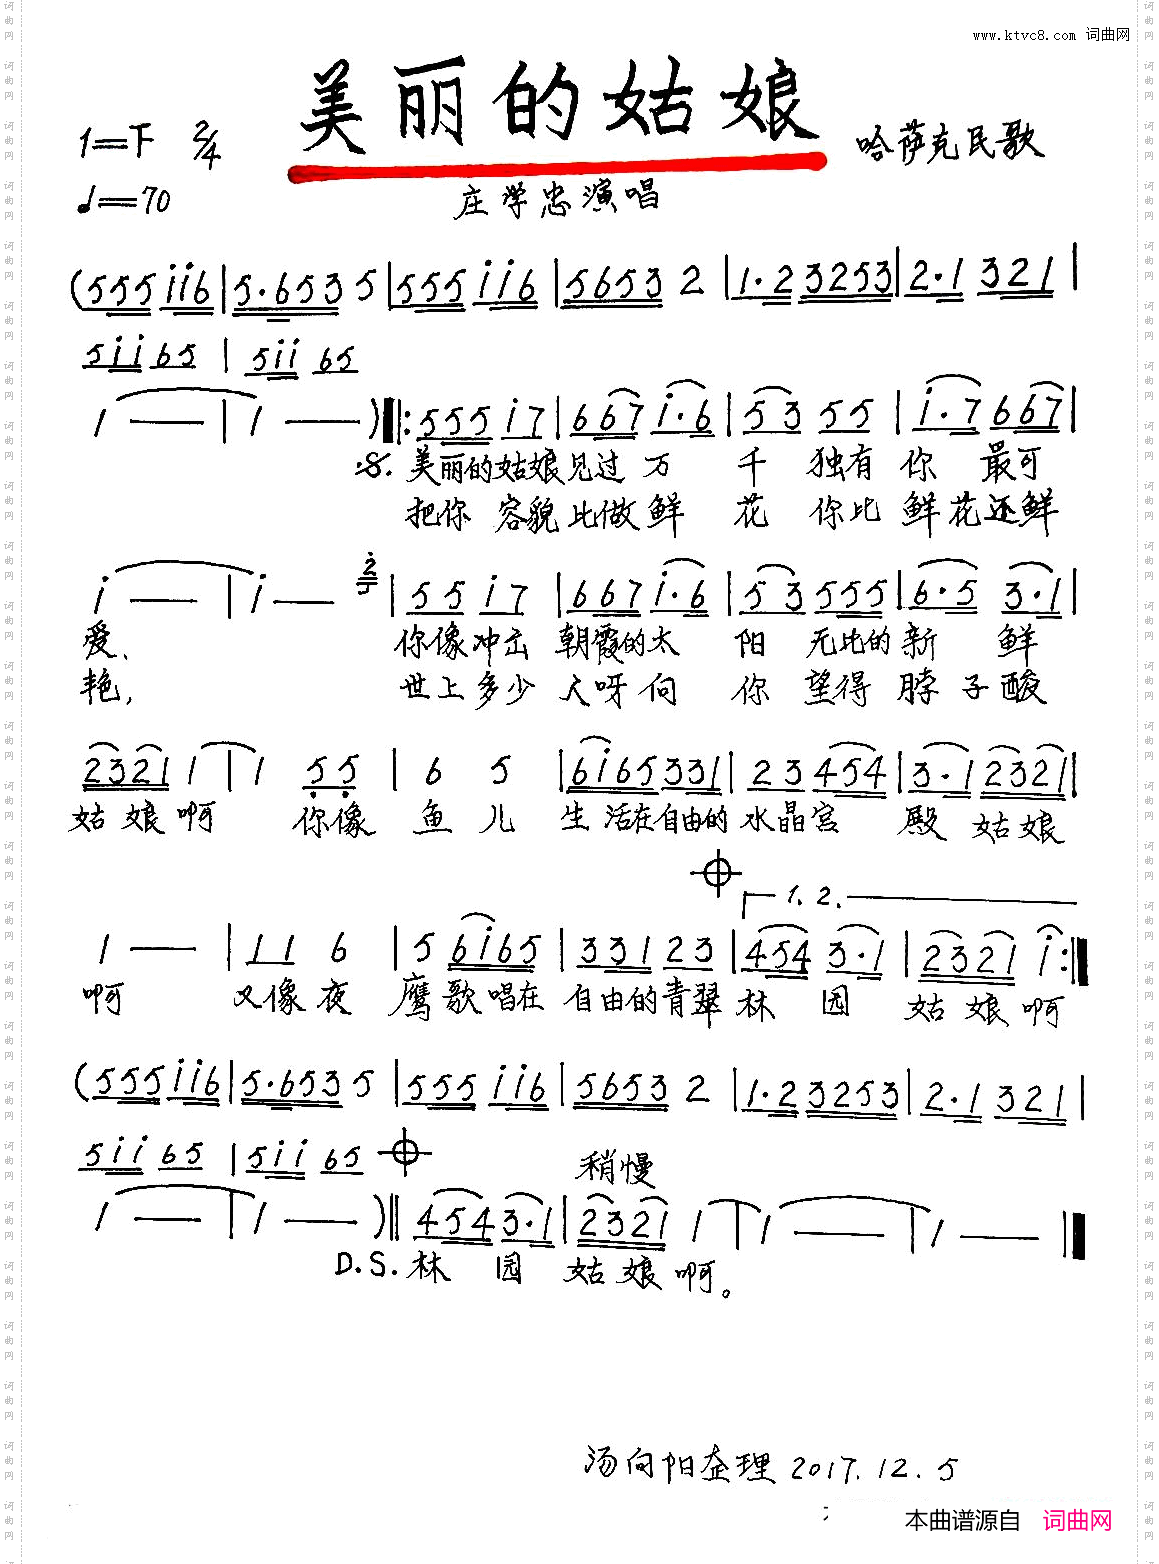 www.ktvc8.com 词曲网
美丽的姑娘
1=下 2/4
哈萨克民歌
♩=70
庄学忠演唱
(555 i i6 | 5·653 5 | 555 i i6 | 5653 2 | 1·2 3253 | 2·1 321 |
5 i i 65 | 5 i i 65
1 — | 1 — ) ‖: 555 i7 | 667 i·6 | 53 55 | i·7 667 |
𝄋. 美丽的姑娘见过万 千 独有你 最可
把你容貌比做鲜 花 你比鲜花还鲜
i — | i — 2 | 55 i7 | 667 i·6 | 53 555 | 6·5 3·1 |
爱、 你像冲击朝霞的太 阳 无比的新 鲜
艳, 世上多少人呀向 你 望得脖子酸
2321 1 | 1 55 | 6 5 | 6i65 331 | 23 454 | 3·1 2321 |
姑娘啊 你像 鱼儿 生活在自由的水晶宫 殿 姑娘
1. 2.
1 — | 11 6 | 5 6i65 | 331 23 | 454 3·1 | 2321 i :‖
啊 又像夜 鹰歌唱在 自由的青翠林 园 姑娘啊
(555 i i6 | 5·653 5 | 555 i i6 | 5653 2 | 1·2 3253 | 2·1 321 |
5 i i 65 | 5 i i 65
稍慢
1 — | 1 — ) ‖ 454 3·1 | 2321 1 | 1 — | 1 — ‖
D.S. 林 园 姑娘啊。
汤向阳整理 2017.12.5
本曲谱源自 词曲网